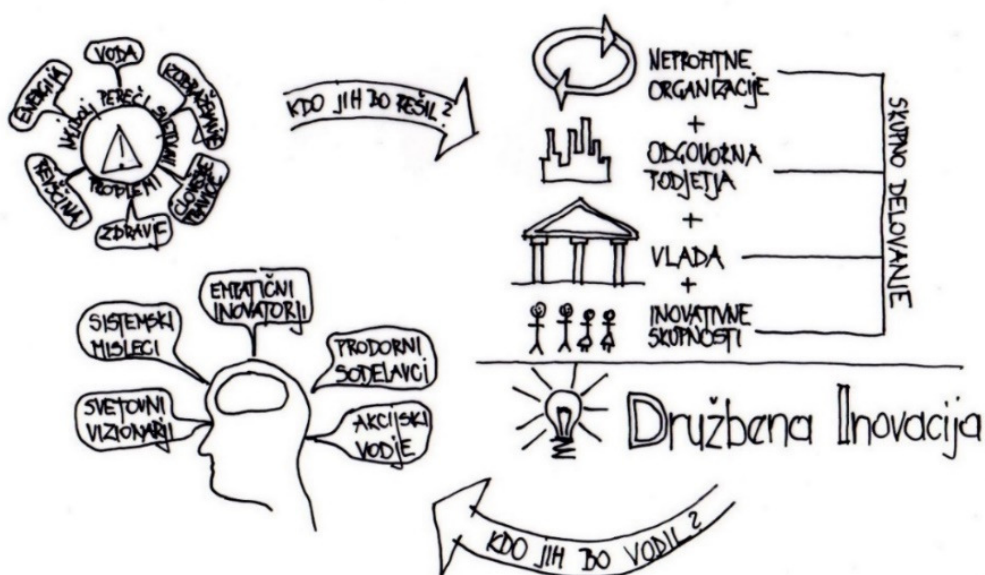 NAJBOLJ PEREČI SVETOVNI
PROBLEMI
VODA
IZOBRAŽEVANJE
ČLOVEŠKE
PRAVICE
ZDRAVJE
REVŠČINA
ENERGIJA
KDO JIH BO REŠIL?
NEPROFITNE
ORGANIZACIJE
+
ODGOVORNA
PODJETJA
+
VLADA
+
INOVATIVNE
SKUPNOSTI
SKUPNO DELOVANJE
Družbena Inovacija
KDO JIH BO VODIL?
SVETOVNI
VIZIONARJI
SISTEMSKI
MISLECI
EMPATIČNI
INOVATORJI
PRODORNI
SODELAVCI
AKCIJSKI
VODJE